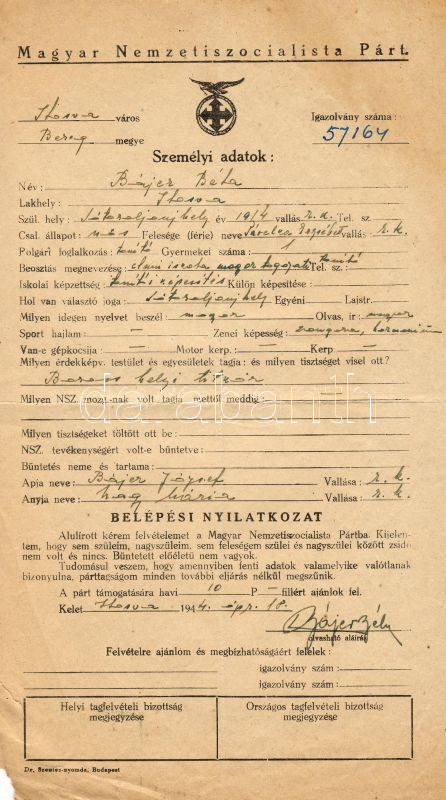 Magyar Nemzetiszocialista Párt.
Ilosva város
Bereg megye
Igazolvány száma :
57164
Személyi adatok :
Név : Bájer Béla
Lakhely : Ilosva
Szül. hely : Sátoraljaujhely év 1914 vallás r. k. Tel. sz.
Csal. állapot : nős Felesége (férje) neve Erzsébet vallás : r. k.
Polgári foglalkozás : tanító Gyermekei száma : 1
Beosztás megnevezése : elemi iskola magyar tagozati tanító Tel. sz.
Iskolai képzettség tanítói képesítés Külön képesítése :
Hol van választó joga : Sátoraljaujhely Egyéni Lajstr.
Milyen idegen nyelvet beszél : magyar Olvas, ir : magyar
Sport hajlam : — Zenei képesség : zongora, harmonium
Van-e gépkocsija — Motor kerp. — Kerp —
Milyen érdekképv. testület és egyesületek tagja : és milyen tisztséget visel ott ?
Baross helyi titkár
Milyen NSZ. mozt.-nak volt tagja mettől meddig :
Milyen tisztségeket töltött ott be :
NSZ. tevékenységért volt-e büntetve :
Büntetés neme és tartama :
Apja neve : Bájer József Vallása : r. k.
Anyja neve : Nagy Mária Vallása : r. k.
BELÉPÉSI NYILATKOZAT
Alulírott kérem felvételemet a Magyar Nemzetiszocialista Pártba. Kijelen-
tem, hogy sem szüleim, nagyszüleim, sem feleségem szülei és nagyszülei között zsidó
nem volt és nincs. Büntetett előéletü nem vagyok.
Tudomásul veszem, hogy amennyiben fenti adatok valamelyike valótlanak
bizonyulna, párttagságom minden további eljárás nélkül megszünik.
A párt támogatására havi 10 P — fillért ajánlok fel.
Kelet Ilosva 1944. ápr. 18.
Bájer Béla
olvasható aláírás
Felvételre ajánlom és megbízhatóságáért felelek :
igazolvány szám :
igazolvány szám :
Helyi tagfelvételi bizottság
megjegyzése
Országos tagfelvételi bizottság
megjegyzése
Dr. Szentes-nyomda, Budapest
darabanth